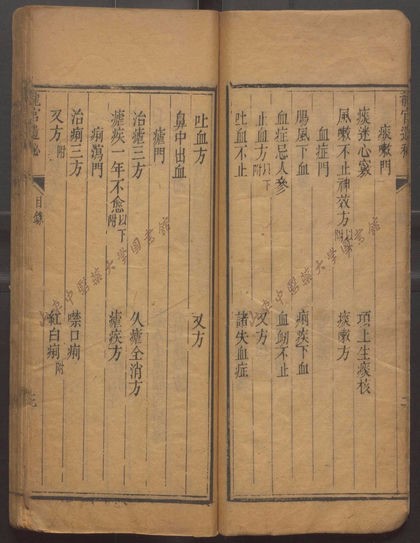 痰嗽門
痰迷心竅　項上生痰核
風嗽不止神效方以下附　痰嗽方
血症門
血症忌人參　血衂不止
腸風下血　痢疾下血
止血方以下附　又方
吐血不止　諸失血症
吐血方　又方
鼻中出血
瘧門
治瘧三方　久瘧全消方
瘧疾一年不愈以下附　瘧疾方
痢瀉門
治痢三方　噤口痢
又方附　紅白痢附
龍宮遺秘
目錄
中醫藥大學圖書館
中醫藥大學圖書館